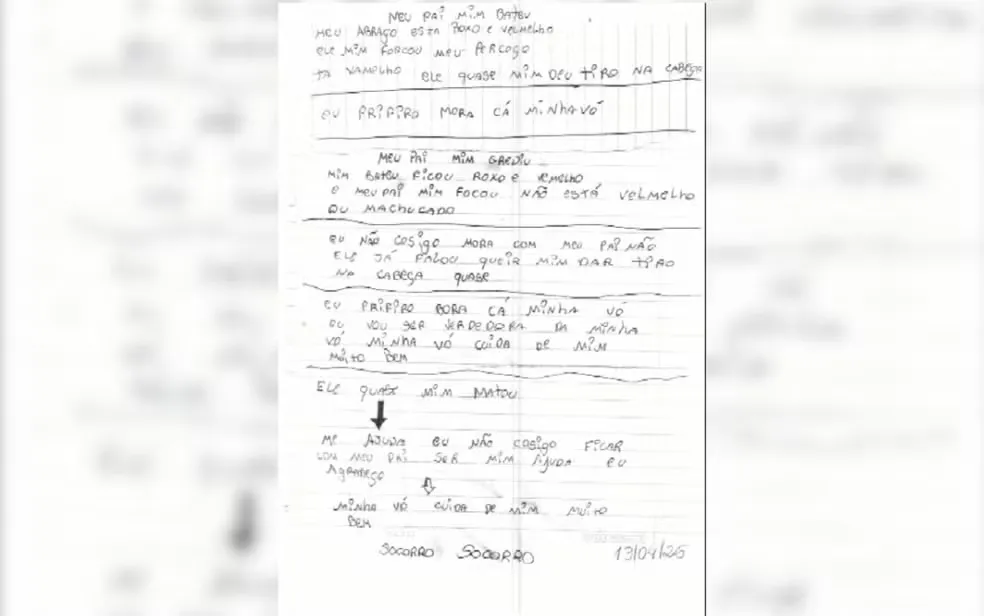 MEU PAI MIM BATEU
MEU ABRAÇO ESTA ROXO E VERMELHO
ELE MIM FORCOU MEU PERCOÇO
TA VAMELHO ELE QUASE MIM DEU TIRO NA CABEÇA
EU PRIFIRO MORA CÁ MINHA VÓ
MEU PAI MIM GREDIU
MIM BATEU FICOU ROXO E VEMELHO
E MEU PAI MIM FOCOU NÃO ESTÁ VELMELHO
OU MACHUCADO
EU NÃO COSIGO MORA COM MEU PAI NÃO
ELE JÁ FALOU QUEIR MIM DAR TIRO
NA CABEÇA QUASE
EU PRIFIRO BORA CÁ MINHA VÓ
EU VOU SER VERDEDORA DA MINHA
VÓ MINHA VÓ CUIDA DE MIM
MUITO BEM
ELE QUASE MIM MATOU
ME AJUDA EU NÃO COSIGO FICAR
COM MEU PAI SER MIM AJUDA EU
AGRADEÇO
MINHA VÓ CUIDA DE MIM MUITO
BEM
SOCORRO SOCORRO 13/04/26